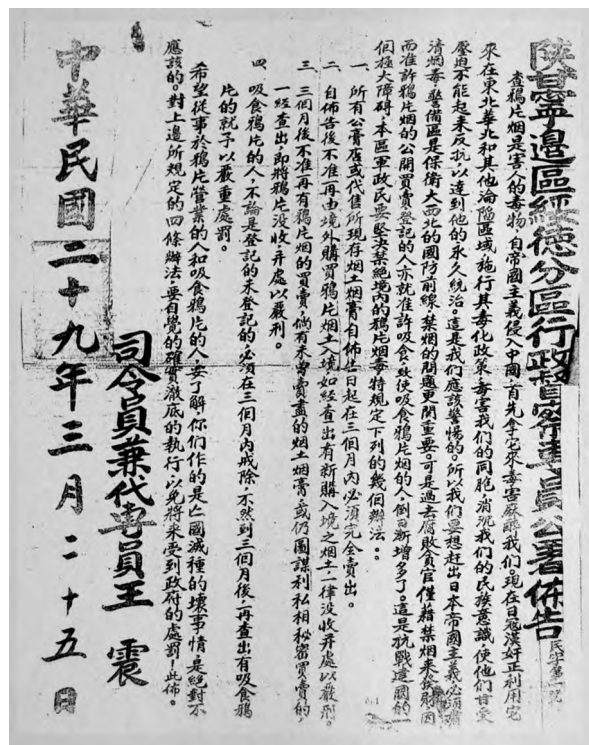 陕甘寧邊區綏德分區行政督察專員公署佈告
民字第一號
查鴉片烟是害人的毒物，自帝國主義侵入中國，首先拿它來毒害麻醉我們。現在日寇漢奸正利用它
來在東北華北和其他淪陷區域，施行其毒化政策，毒害我們的同胞，消沉我們的民族意識，使他們甘受
壓迫不能起來反抗，以達到他的永久統治。這是我們應該警惕的。所以我們要想赶出日本帝國主義必須肅
清烟毒，警備區是保衛大西北的國防前線，禁烟的問題更関重要。可是過去腐敗貪官僅藉禁烟来發財，因
而准許鴉片烟的公開買賣，登記的人亦就准許吸食，致使吸食鴉片烟的人倒日新增多了。這是抗戰建國的一
個極大障碍。本區軍政民要堅决禁絕境內的鴉片烟毒，特規定下列的幾個辦法：
一、所有公膏店或代售所現存烟土烟膏自佈告日起在三個月內必須完全賣出。
二、自佈告後不准再由境外購買鴉片烟土入境，如經查出有新購入境之烟土一律没收并處以嚴刑。
三、三個月後不准再有鴉片烟的買賣，倘有未曾賣盡的烟土烟膏，或仍圖謀利私相秘密買賣的，
一經查出，即將鴉片没收，并處以嚴刑。
四、吸食鴉片的人，不論是登記的未登記的，必須在三個月內戒除，不然到三個月後，再查出有吸食鴉
片的就予以嚴重處罰。
希望從事於鴉片營業的人和吸食鴉片的人，要了解，你们作的是亡國滅種的壞事情，是絕對不
應該的。對上邊所規定的四條辦法，要自覺的確實澈底的執行，以免將来受到政府的處罰！此佈。
司令員兼代專員王震
中華民國二十九年三月二十五日